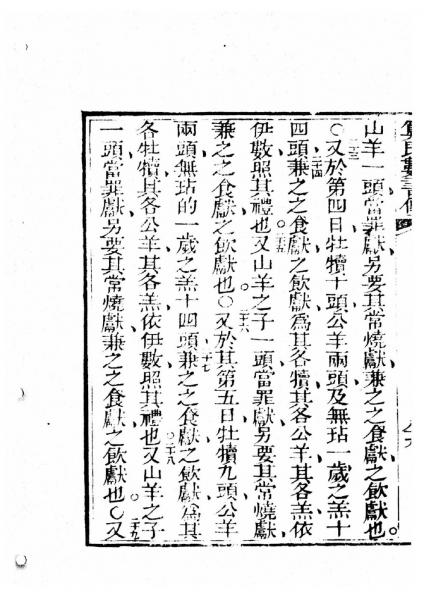 算民數書傳
山羊一頭當罪獻另要其常燒獻兼之之食獻之飲獻也。
○又於第四日牡犢十頭公羊兩頭及無玷一歲之羔十
四頭兼之之食獻之飲獻爲其各犢其各公羊其各羔依
伊數照其禮也又山羊之子一頭當罪獻另要其常燒獻
兼之之食獻之飲獻也○又於其第五日牡犢九頭公羊
兩頭無玷的一歲之羔十四頭兼之之食獻之飲獻爲其
各牡犢其各公羊其各羔依伊數照其禮也又山羊之子
一頭當罪獻另要其常燒獻兼之之食獻之飲獻也○又
二十三
二十四
二十五
二十六
二十七
二十八
二十九